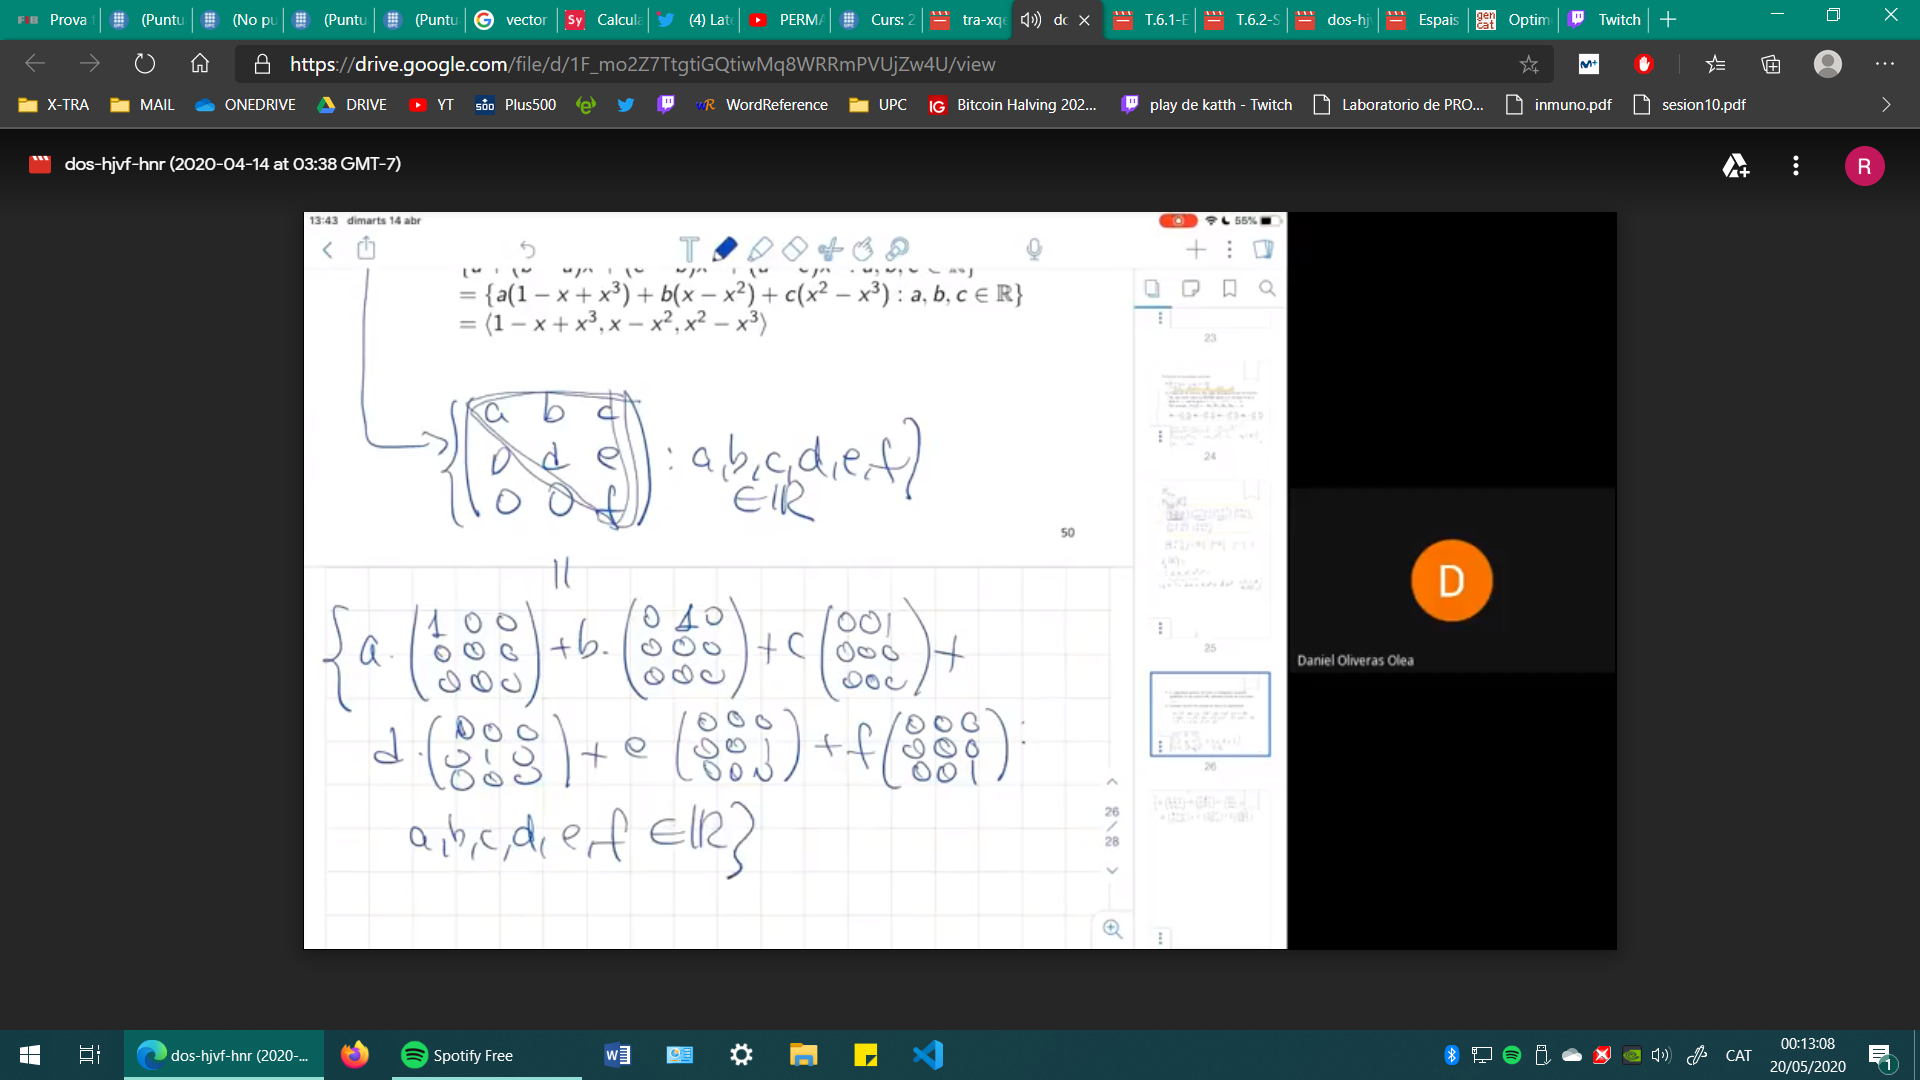 Prova
(Puntu
(No pu
(Puntu
(Puntu
vector
Calcula
(4) Late
PERMA
Curs: 2
tra-xqe
do
T.6.1-E
T.6.2-S
dos-hjv
Espais
Optim
Twitch
https://drive.google.com/file/d/1F_mo2Z7TtgtiGQtiwMq8WRRmPVUjZw4U/view
X-TRA
MAIL
ONEDRIVE
DRIVE
YT
Plus500
WordReference
UPC
Bitcoin Halving 202...
play de katth - Twitch
Laboratorio de PRO...
inmuno.pdf
sesion10.pdf
dos-hjvf-hnr (2020-04-14 at 03:38 GMT-7)
R
13:43 dimarts 14 abr
55%
= {a(1 − x + x³) + b(x − x²) + c(x² − x³) : a, b, c ∈ ℝ}
= ⟨1 − x + x³, x − x², x² − x³⟩
a b c
0 d e : a,b,c,d,e,f}
0 0 f ∈ℝ
50
||
{a· (1 0 0 / 0 0 0 / 0 0 0) + b· (0 1 0 / 0 0 0 / 0 0 0) + c (0 0 1 / 0 0 0 / 0 0 0) +
d· (0 0 0 / 0 1 0 / 0 0 0) + e (0 0 0 / 0 0 1 / 0 0 0) + f (0 0 0 / 0 0 0 / 0 0 1) :
a,b,c,d,e,f ∈ℝ}
23
24
25
26
26
/
28
D
Daniel Oliveras Olea
dos-hjvf-hnr (2020-...
Spotify Free
CAT
00:13:08
20/05/2020
1